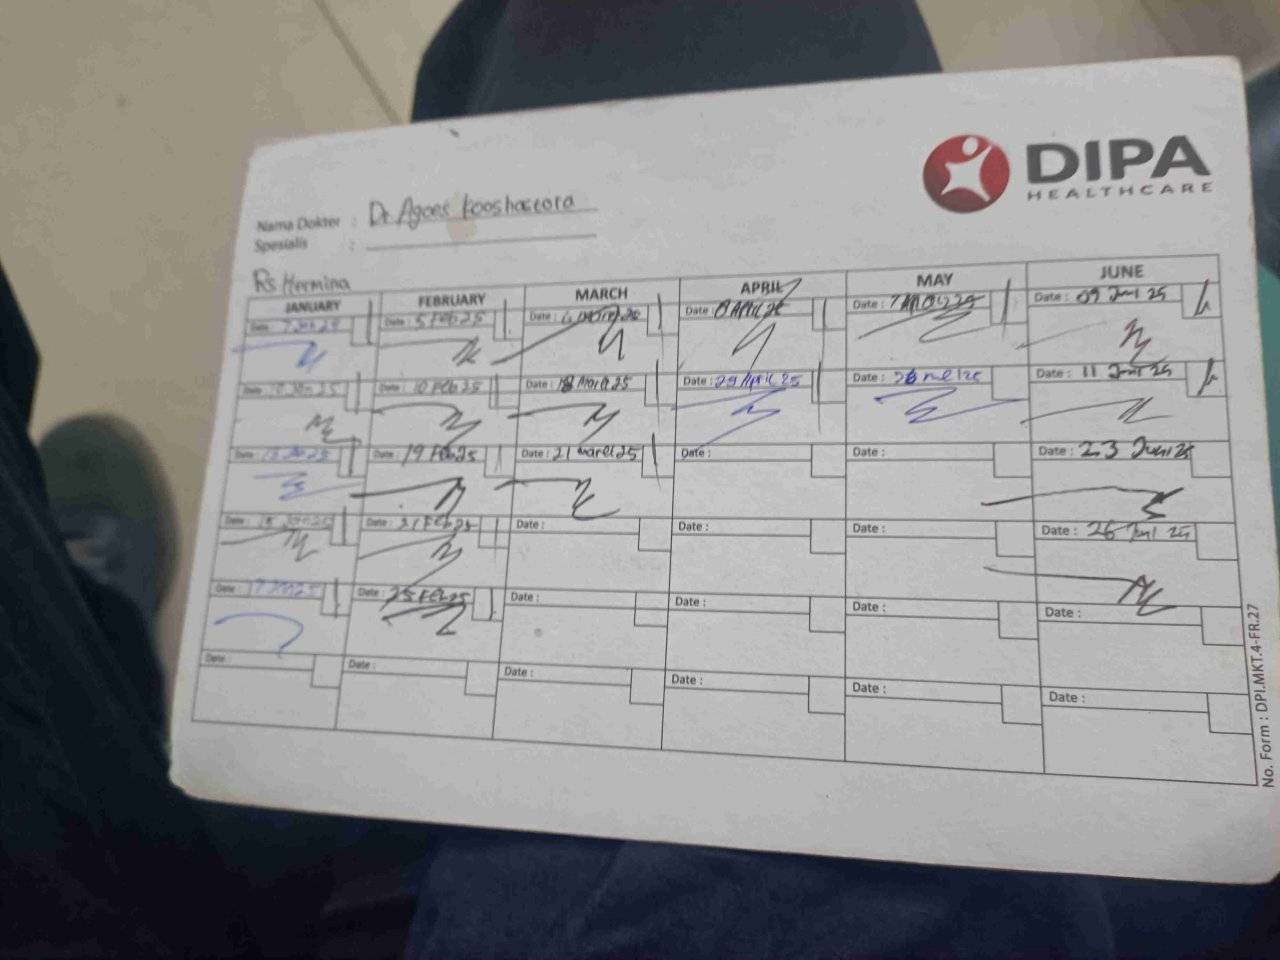 DIPA
HEALTHCARE
Nama Dokter : Dr. Agoes Kooshartoro
Spesialis :
RS Hermina
JANUARY FEBRUARY MARCH APRIL MAY JUNE
Date : Date : 5 Feb 25 Date : Date : 8 April 25 Date : 7 Date : 09 Jun 25
Date : Date : 10 Feb 25 Date : 18 Maret 25 Date : 29 April 25 Date : Date : 11 Juni 25
Date : Date : 19 Feb 25 Date : 21 Maret 25 Date : Date : Date : 23 Juni 25
Date : Date : 21 Feb 25 Date : Date : Date : Date : 26 Juni 25
Date : Date : 25 Feb 25 Date : Date : Date : Date :
Date : Date : Date : Date : Date : Date :
No. Form : DPI.MKT.4-FR.27